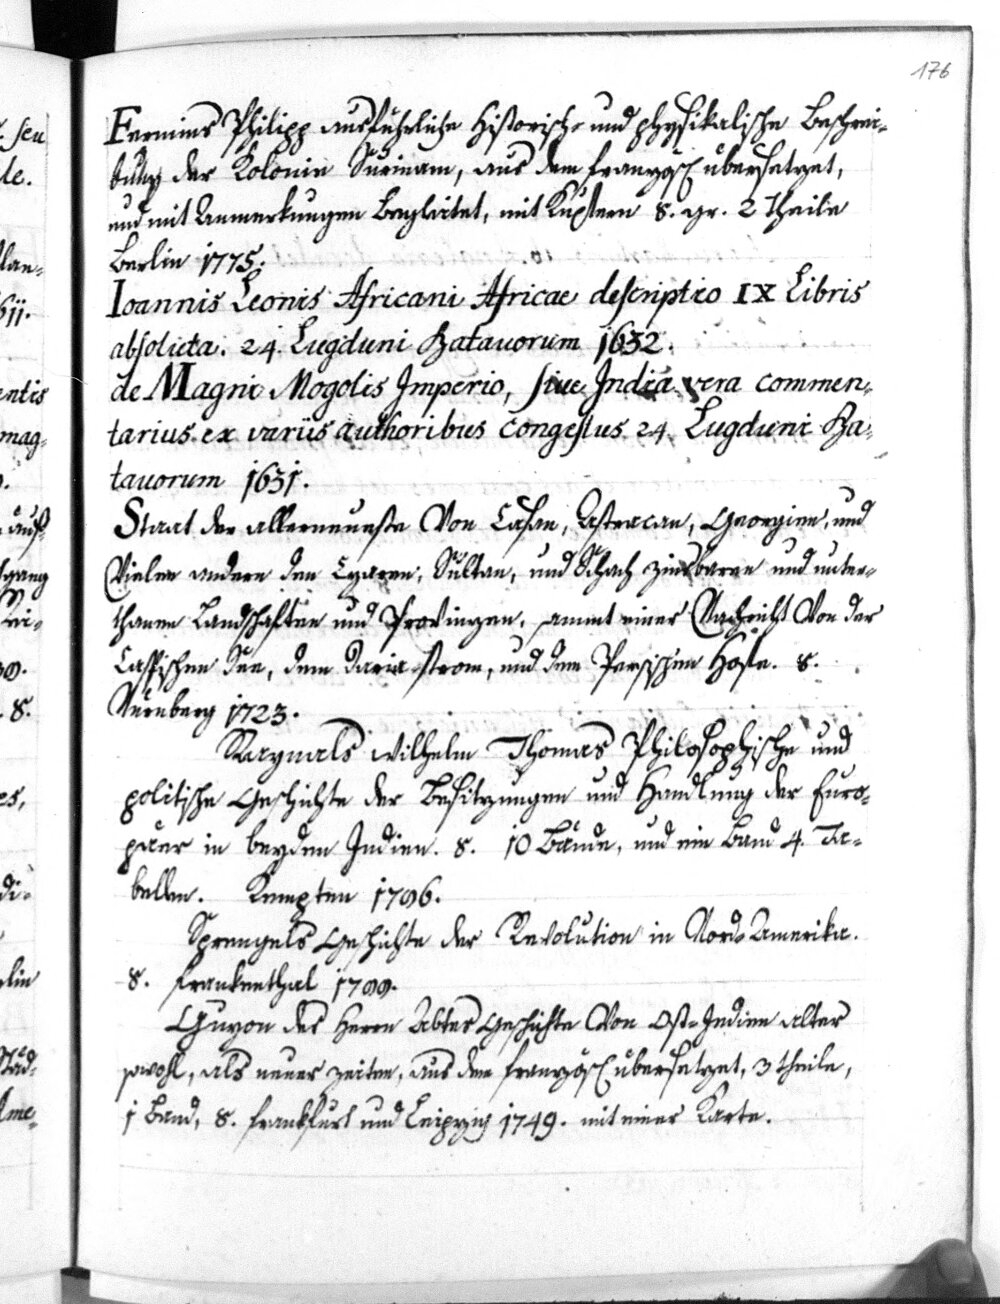 176
Fermins Philipp ausführliche Historisch- und physikalische Beschrei-
bung der Kolonie Surinam, aus dem französ. übersetzet,
und mit Anmerkungen begleitet, mit Kupfern 8. gr. 2 Theile
Berlin 1775.
Ioannis Leonis Africani Africae descriptio IX Libris
absoluta. 24. Lugduni Batavorum 1632.
de Magni Mogolis Imperio, sive India vera commen-
tarius ex variis authoribus congestus 24. Lugduni Ba-
tavorum 1631.
Staat der allerneueste Von Casan, Astracan, Georgien, und
Vielen andern den Czaren, Sultan, und Schach zinsbaren und unter-
thanen Landschaften und Provinzen, sammt einer Nachricht Von der
Caspischen See, dem Daria strom, und dem Persischen Hofe. 8.
Nürnberg 1723.
Raynals Wilhelm Thomas Philosophische und
politische Geschichte der Besitzungen und Handlung der Euro-
päer in beyden Indien. 8. 10 Bände, und ein Band 4. Ta-
bellen. Kempten 1786.
Sprengels Geschichte der Revolution in Nord-Amerika.
8. Frankenthal 1788.
Guyon des Herrn Abtes Geschichte Von Ost-Indien alter
sowohl, als neuer Zeiten, aus dem französ. übersetzet, 3 theile,
1 Band, 8. Frankfurt und Leipzig 1749. mit einer Karte.
seu
de.
lan-
entis
mag-
auf-
gang
8.
es,
di-
rlin
Städ-
Ame-